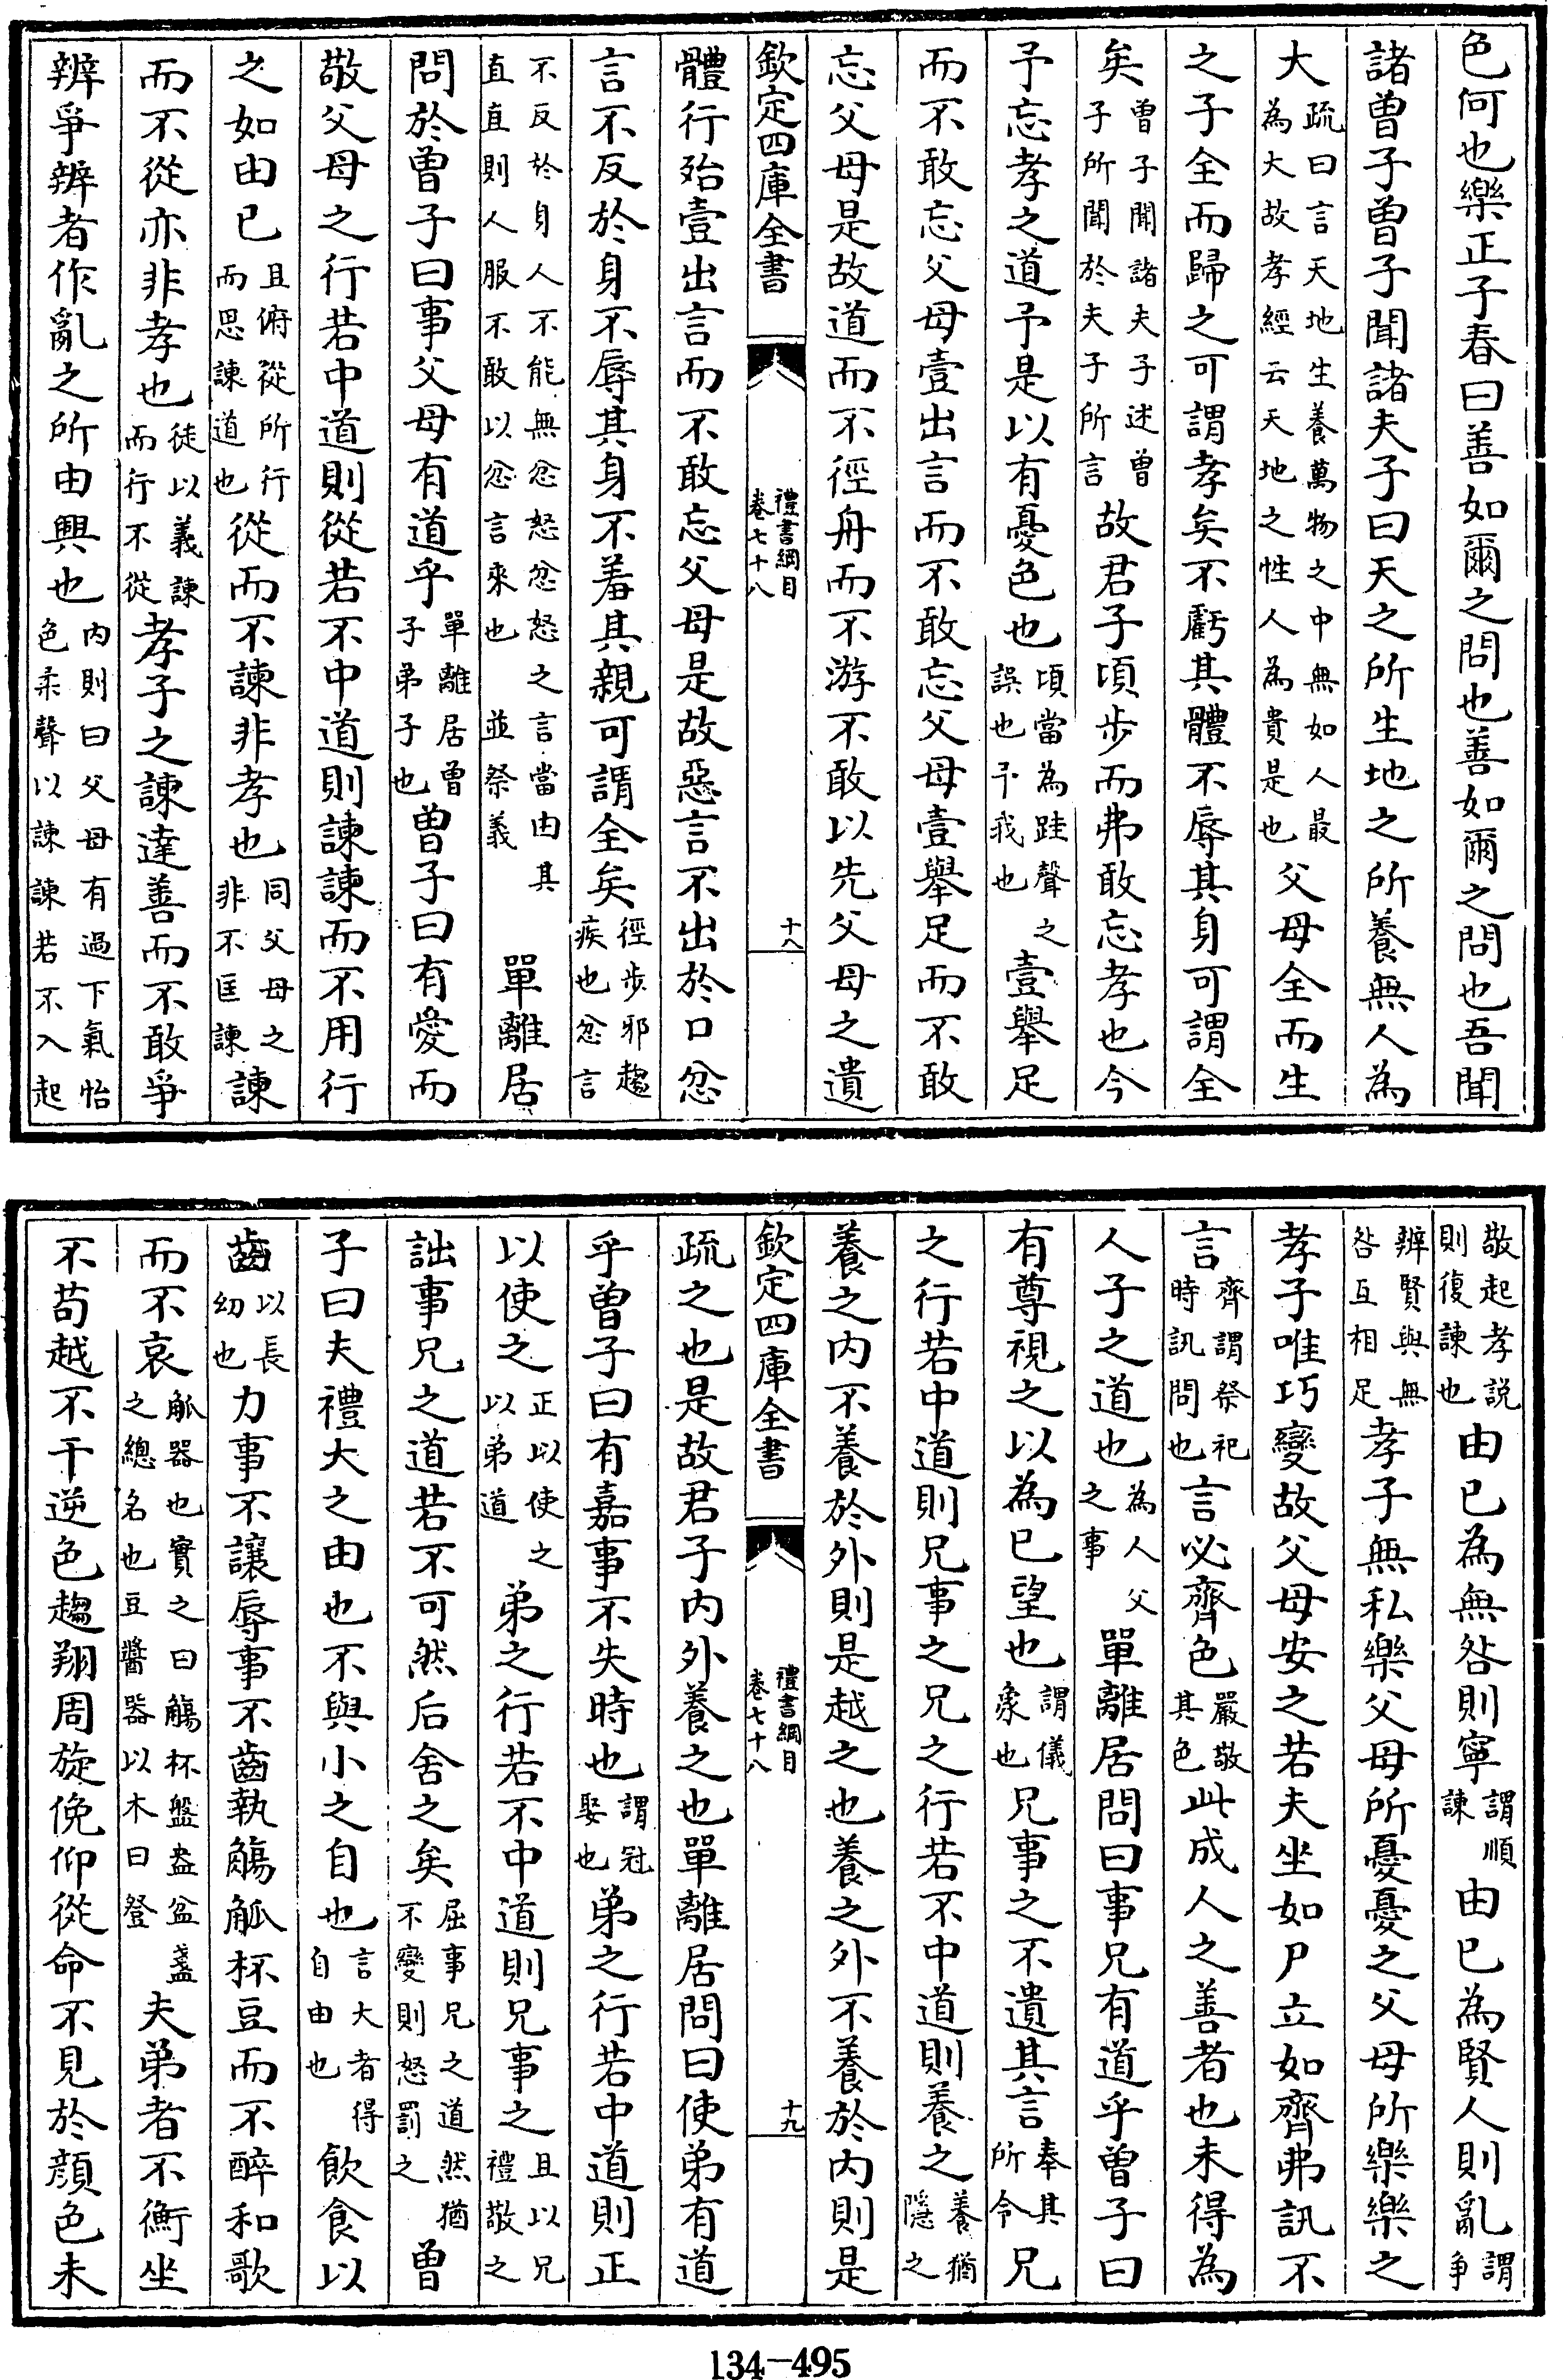 色何也樂正子春曰善如爾之問也善如爾之問也吾聞
諸曾子曾子聞諸夫子曰天之所生地之所養無人為
大疏曰言天地生養萬物之中無如人最為大故孝經云天地之性人為貴是也父母全而生
之子全而歸之可謂孝矣不虧其體不辱其身可謂全
矣曾子聞諸夫子述曾子所聞於夫子所言故君子頃步而弗敢忘孝也今
予忘孝之道予是以有憂色也頃當為跬聲之誤也予我也壹舉足
而不敢忘父母壹出言而不敢忘父母壹舉足而不敢
忘父母是故道而不徑舟而不游不敢以先父母之遺
欽定四庫全書 禮書綱目卷七十八 十八
體行殆壹出言而不敢忘父母是故惡言不出於口忿
言不反於身不辱其身不羞其親可謂全矣徑步邪趨疾也忿言
不反於身人不能無忿怒忿怒之言當由其直直則人服不敢以忿言來也 並祭義 單離居
問於曾子曰事父母有道乎單離居曾子弟子也曾子曰有愛而
敬父母之行若中道則從若不中道則諫諫而不用行
之如由已且俯從所行而思諫道也從而不諫非孝也同父母之非不匡諫諫
而不從亦非孝也徒以義諫而行不從孝子之諫達善而不敢爭
辨爭辨者作亂之所由興也內則曰父母有過下氣怡色柔聲以諫諫若不入起
敬起孝説則復諫也由已為無咎則寧謂順諫由已為賢人則亂謂爭
辨賢與無咎互相足孝子無私樂父母所憂憂之父母所樂樂之
孝子唯巧變故父母安之若夫坐如尸立如齊弗訊不
言齊謂祭祀時訊問也言必齊色嚴敬其色此成人之善者也未得為
人子之道也為人父之事單離居問曰事兄有道乎曾子曰
有尊視之以為已望也謂儀象也兄事之不遺其言奉其所令兄
之行若中道則兄事之兄之行若不中道則養之養猶隱之
養之內不養於外則是越之也養之外不養於內則是
欽定四庫全書 禮書綱目卷七十八 十九
疏之也是故君子內外養之也單離居問曰使弟有道
乎曾子曰有嘉事不失時也謂冠娶也弟之行若中道則正
以使之正以使之以弟道弟之行若不中道則兄事之且以兄禮敬之
詘事兄之道若不可然后舍之矣屈事兄之道然猶不變則怒罰之曾
子曰夫禮大之由也不與小之自也言大者得自由也飲食以
齒以長幼也力事不讓辱事不齒執觴觚杯豆而不醉和歌
而不哀觚器也實之曰觴杯盤盎盆盞之總名也豆醬器以木曰登夫弟者不衡坐
不苟越不干逆色趨翔周旋俛仰從命不見於顏色未
134-495